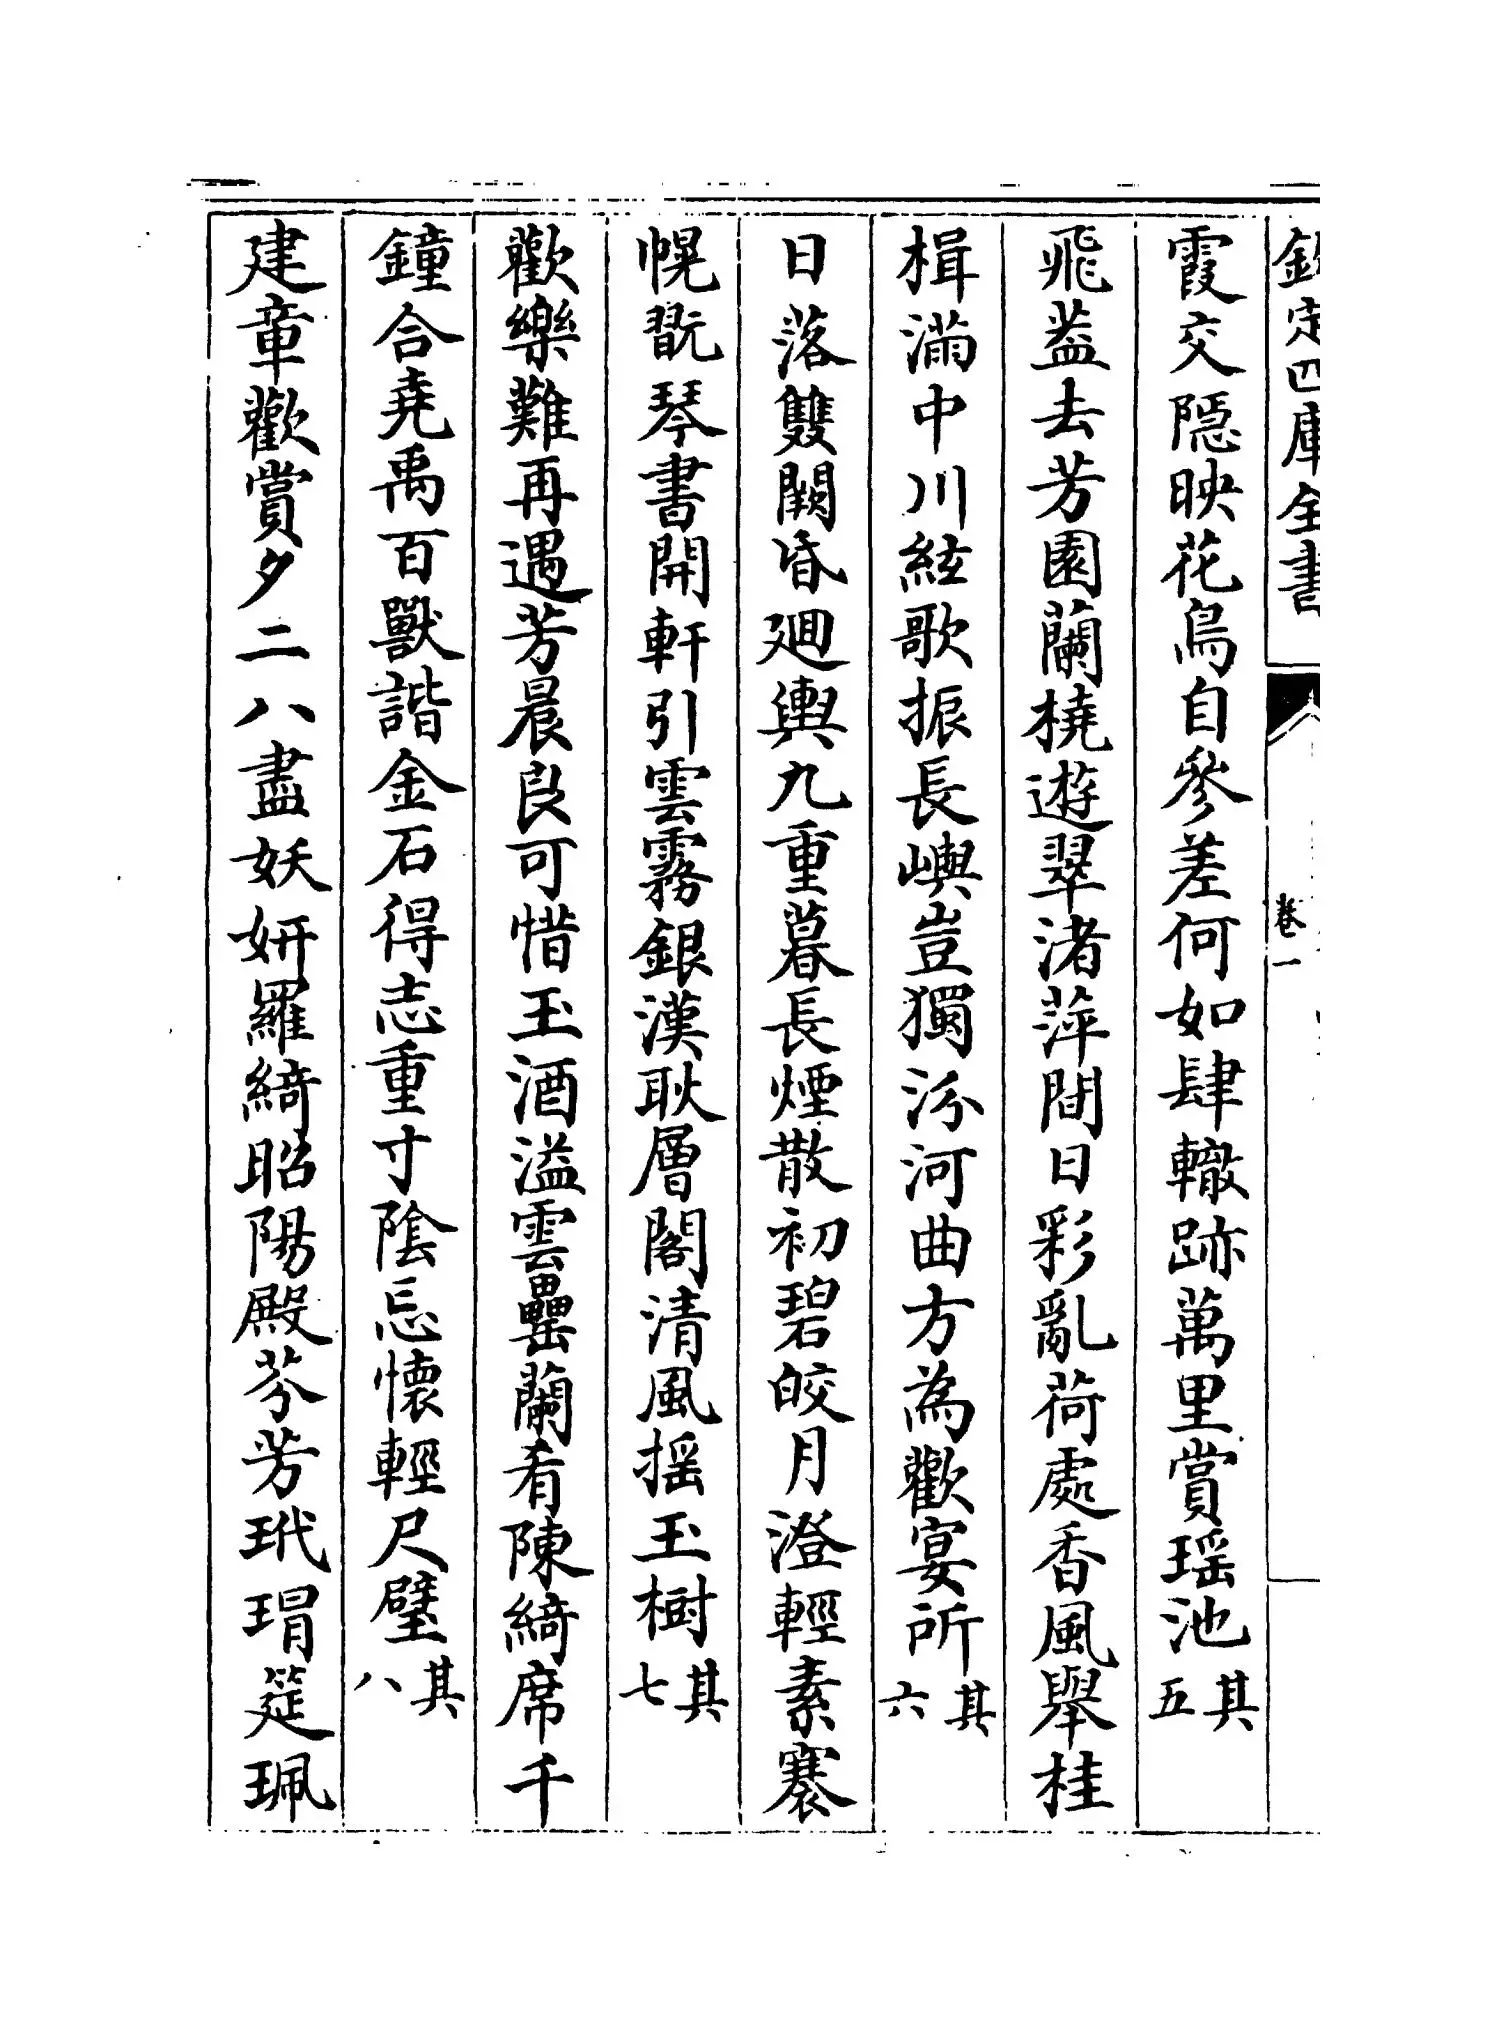 欽定四庫全書
卷一
霞交隱映花鳥自參差何如肆轍跡萬里賞瑶池其五
飛葢去芳園蘭橈遊翠渚萍間日彩亂荷處香風舉桂
楫滿中川絃歌振長嶼豈獨汾河曲方為歡宴所其六
日落雙闕昏廻輿九重暮長煙散初碧皎月澄輕素褰
幌翫琴書開軒引雲霧銀漢耿層閣清風揺玉樹其七
歡樂難再遇芳晨良可惜玉酒溢雲罍蘭肴陳綺席千
鐘合堯禹百獸諧金石得志重寸陰忘懷輕尺璧其八
建章歡賞夕二八盡妖妍羅綺昭陽殿芬芳玳瑁筵珮